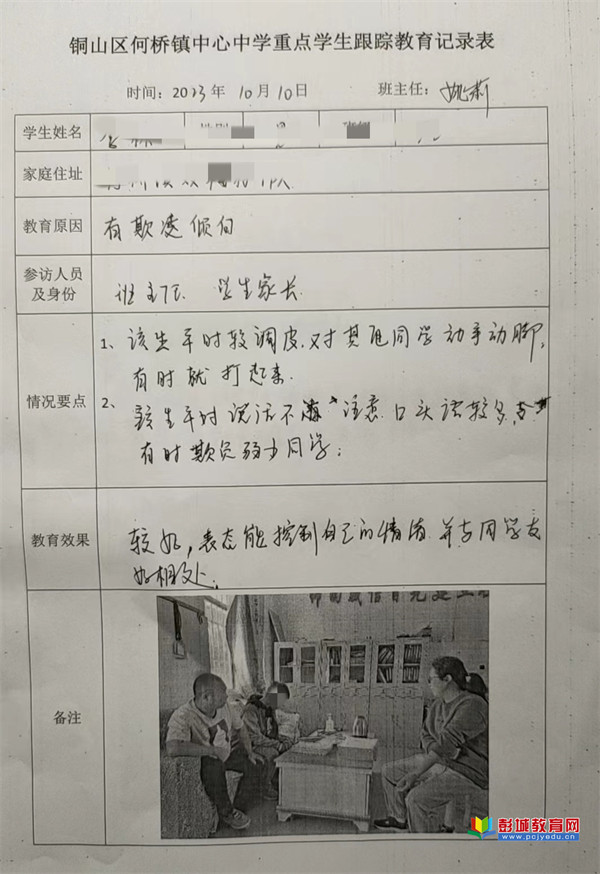 铜山区何桥镇中心中学重点学生跟踪教育记录表
时间：2023年 10月10日 班主任：
学生姓名
家庭住址
教育原因 有欺凌倾向
参访人员及身份 班主任 学生家长
情况要点
1、该生平时较调皮，对其他同学动手动脚，
有时就打起来.
2、该生平时说话不 注意 口头语较多
有时欺负弱小同学；
教育效果 较好，表态能控制自己的情绪 并与同学友
好相处；
备注
彭城教育网
www.pcjyedu.cn